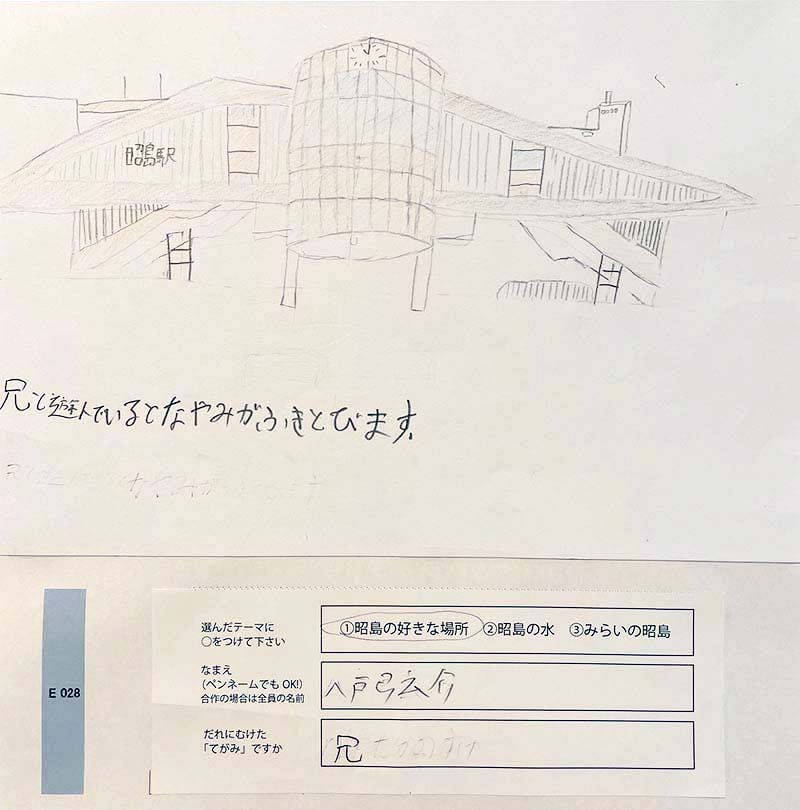 昭島駅
兄と遊んでいるとなやみがふきとびます。
選んだテーマに
○をつけて下さい
①昭島の好きな場所 ②昭島の水 ③みらいの昭島
なまえ
(ペンネームでもOK!)
合作の場合は全員の名前
八戸弓広介
だれにむけた
「てがみ」ですか
兄
E 028